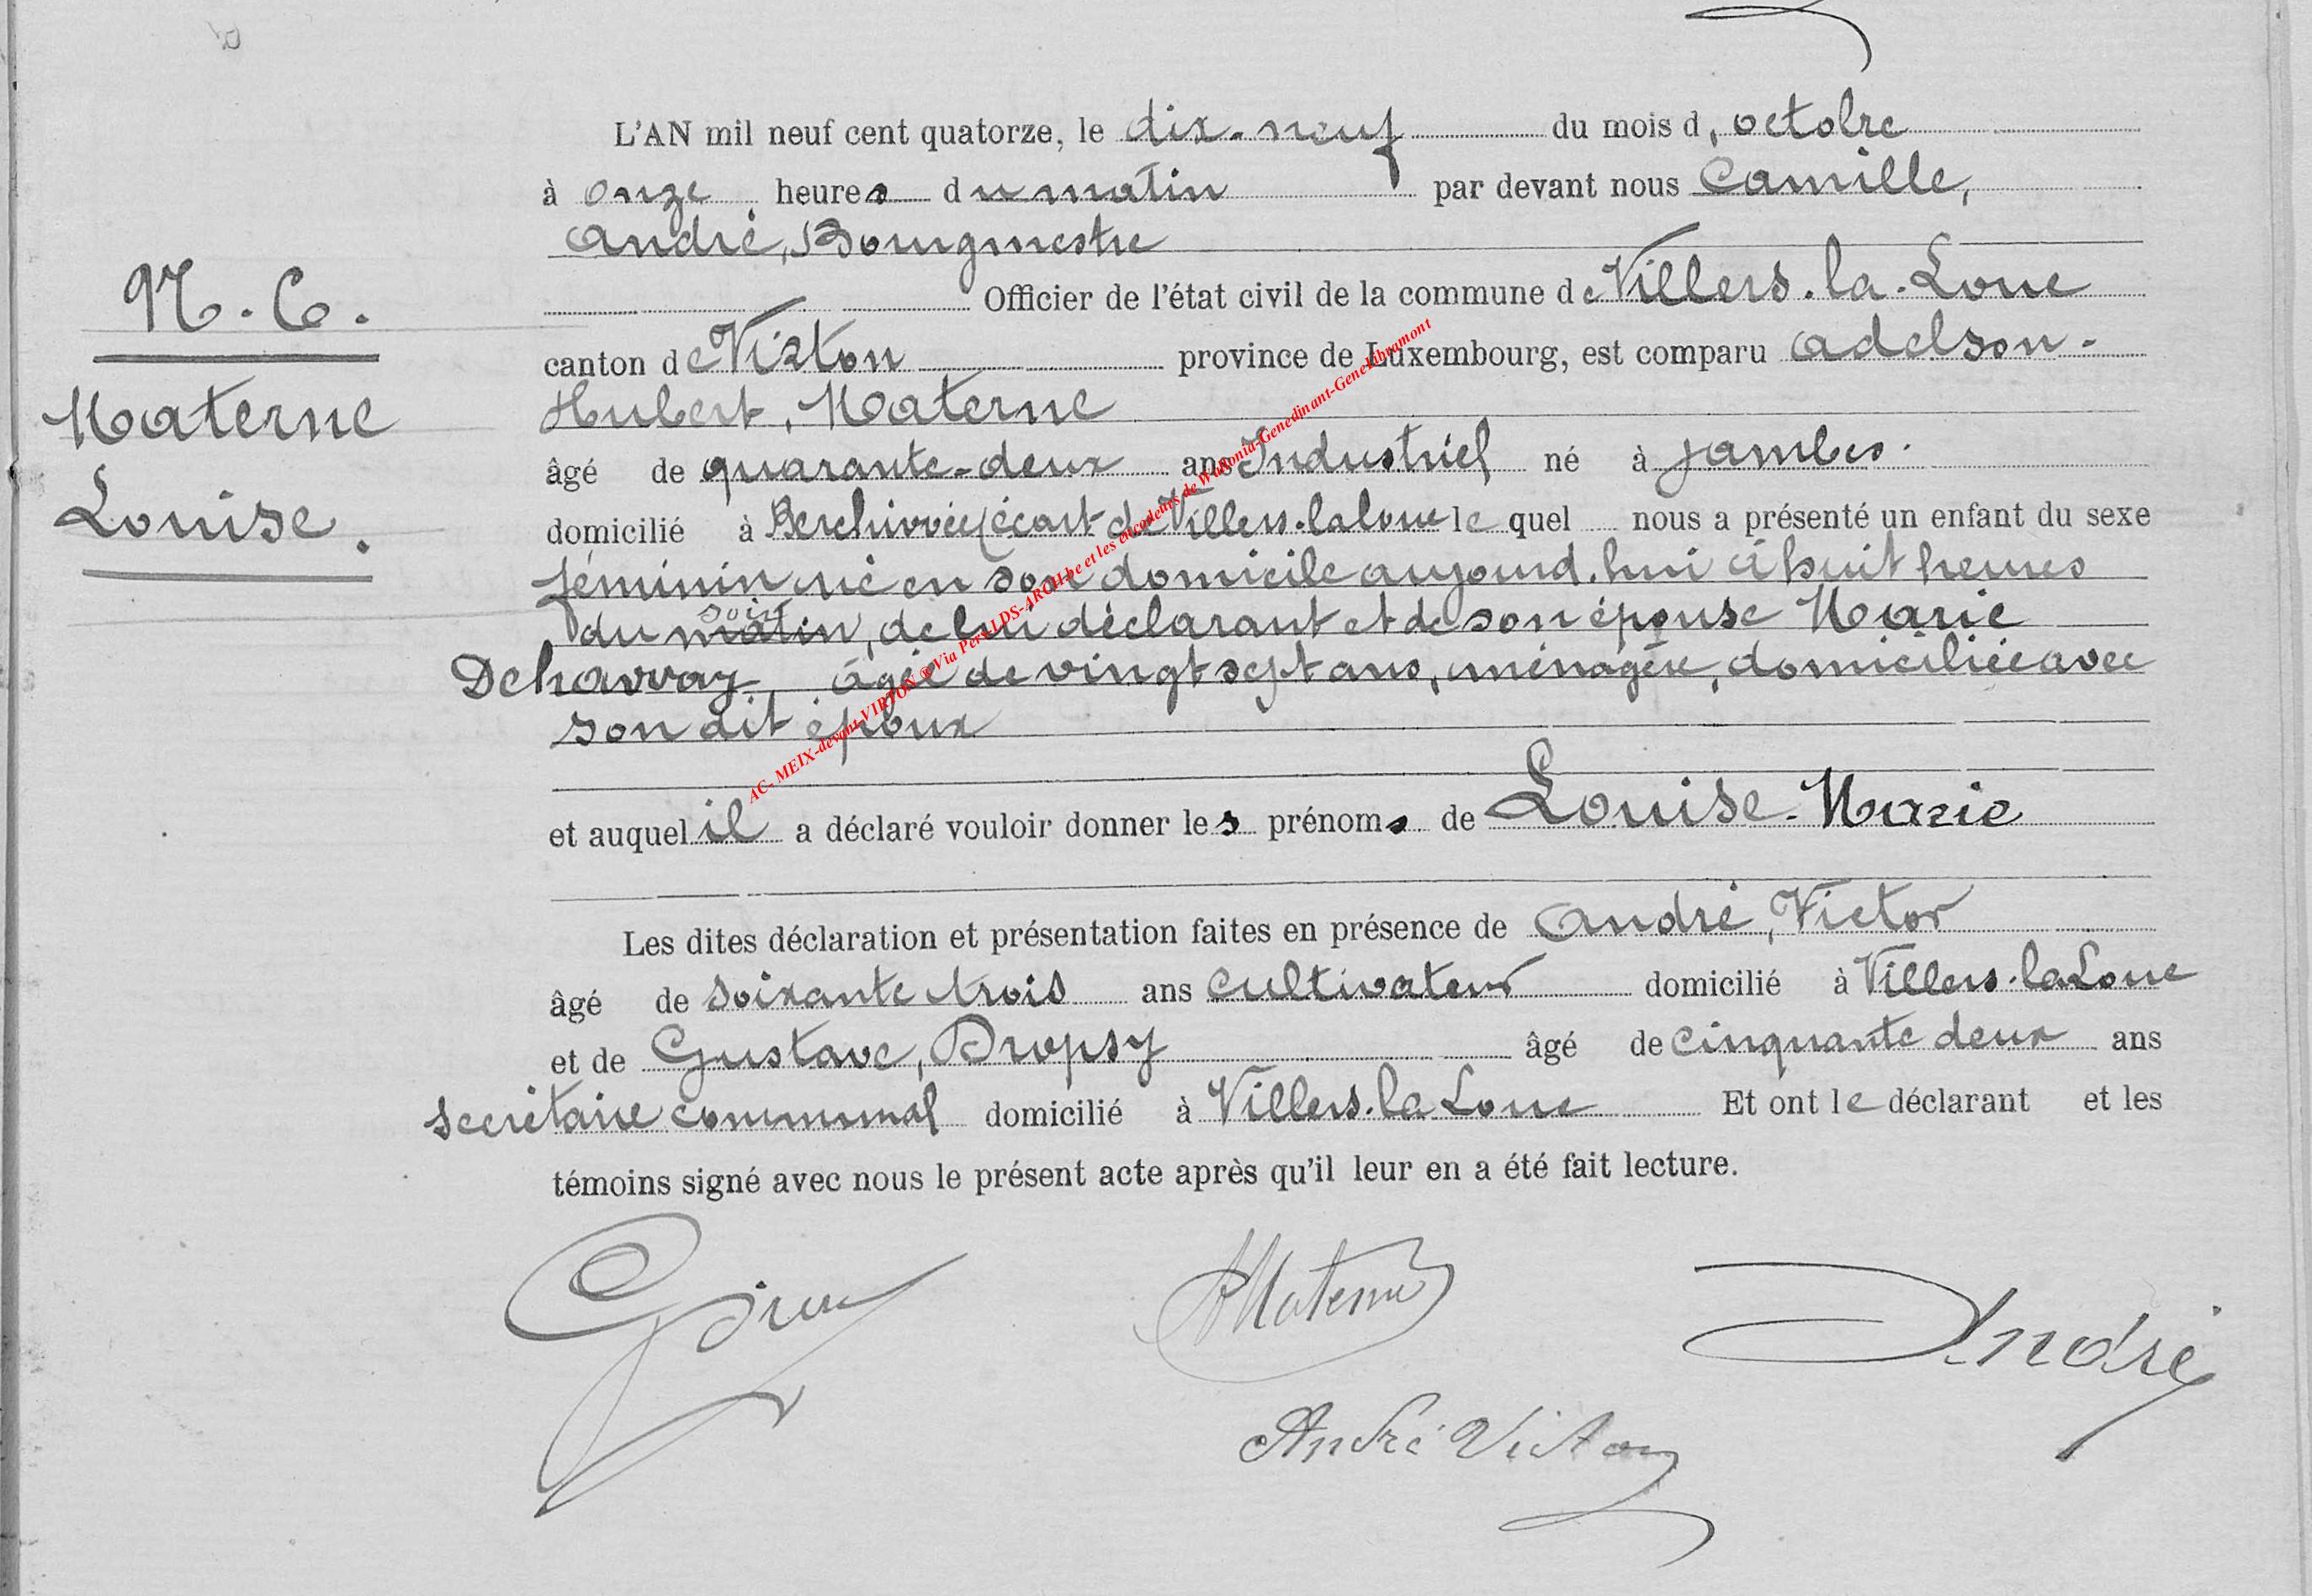 L'AN mil neuf cent quatorze, le dix-neuf du mois d'octobre
à onze heures du matin par devant nous Camille,
André, Bourgmestre
Officier de l'état civil de la commune de Villers-la-Loue
canton de Virton province de Luxembourg, est comparu Adelson-
Hubert, Materne
âgé de quarante-deux ans Industriel né à Jambes.
domicilié à Berchivée (écart de Villers-la loue le quel nous a présenté un enfant du sexe
féminin né en son domicile aujourd'hui à huit heures
soir
du matin, de lui déclarant et de son épouse Marie
Dehavvay, âgée de vingt sept ans, ménagère, domiciliée avec
son dit époux
et auquel il a déclaré vouloir donner les prénoms de Louise-Marie
Les dites déclaration et présentation faites en présence de André, Victor
âgé de soixante trois ans cultivateur domicilié à Villers-la Loue
et de Gustave, Dropsy âgé de cinquante deux ans
secrétaire communal domicilié à Villers-la Loue Et ont le déclarant et les
témoins signé avec nous le présent acte après qu'il leur en a été fait lecture.
N. 6.
Materne
Louise.
AMaterne
André
André Victor
AC- MEIX-devant-VIRTON ® Via Pers-LDS-ARCH.be et les encodeurs de Wallonia-Genedinant-Genelibramont